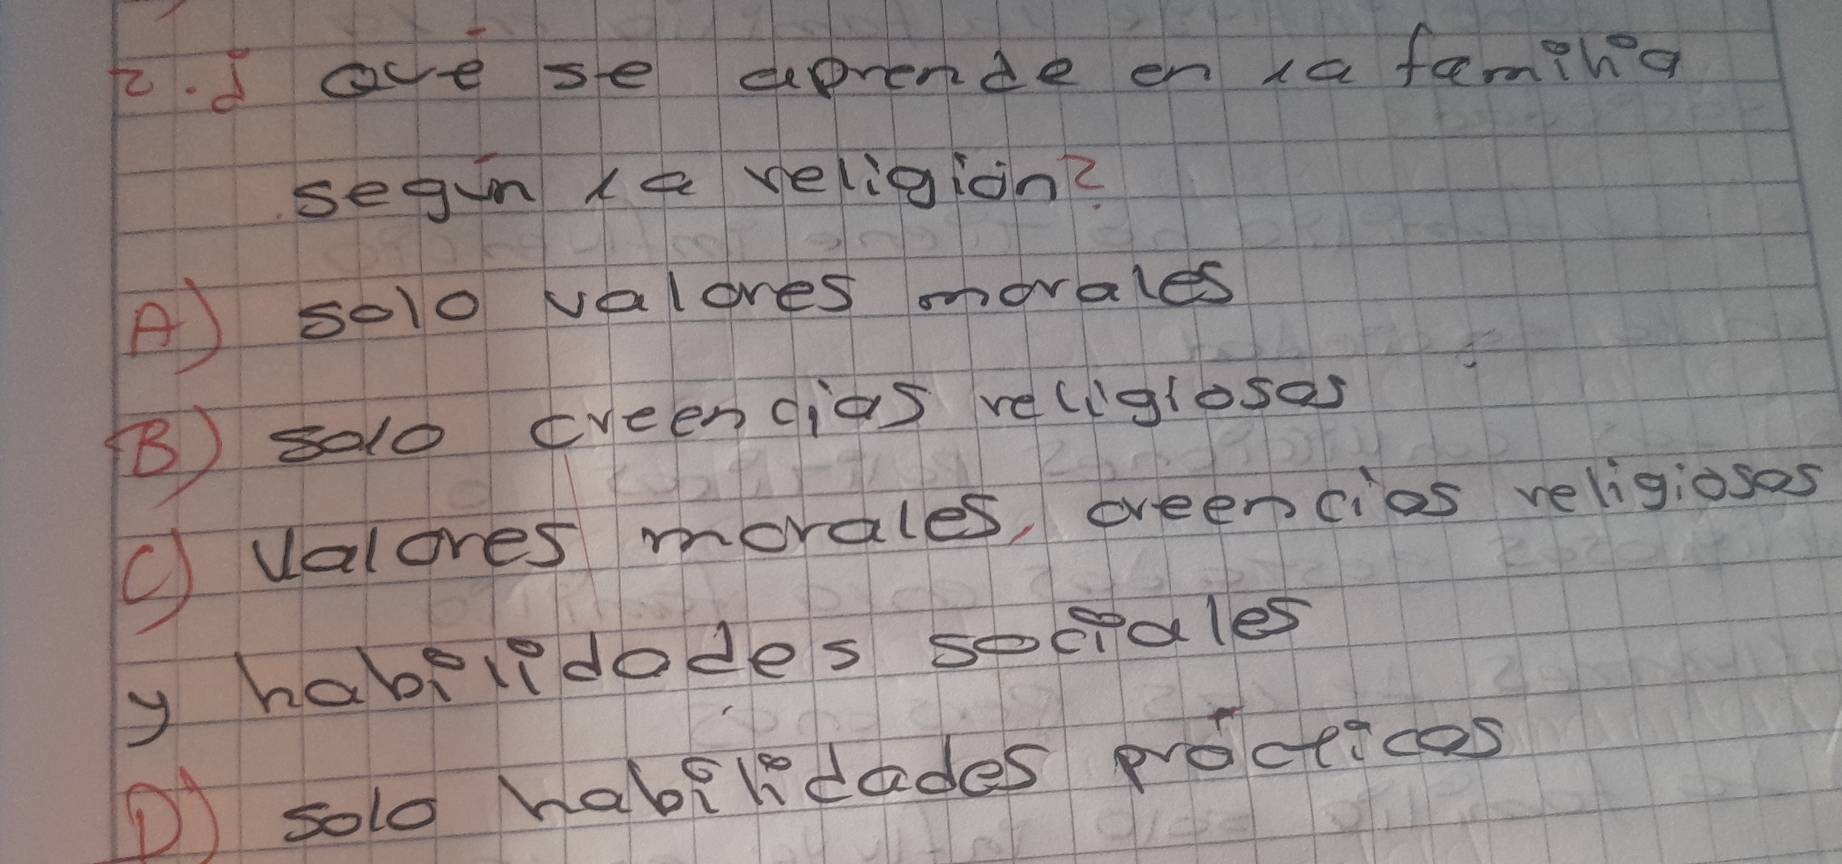 2. ¿ Qué se aprende en la familia
según la religión?
A) solo valores morales
B) solo creencias religiosas
C) Valores morales, creencias religiosas
y habilidades sociales
D) solo habilidades prácticas